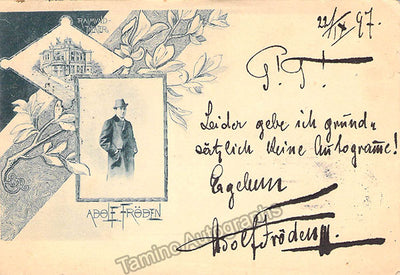 RAIMUND-
THEATER
22/IX 97.
P. T.
Leider gebe ich grund=
sätzlich keine Autogramme!
Ergebenst
Adolf Fröden
ADOLF FRÖDEN
Tamino Autographs